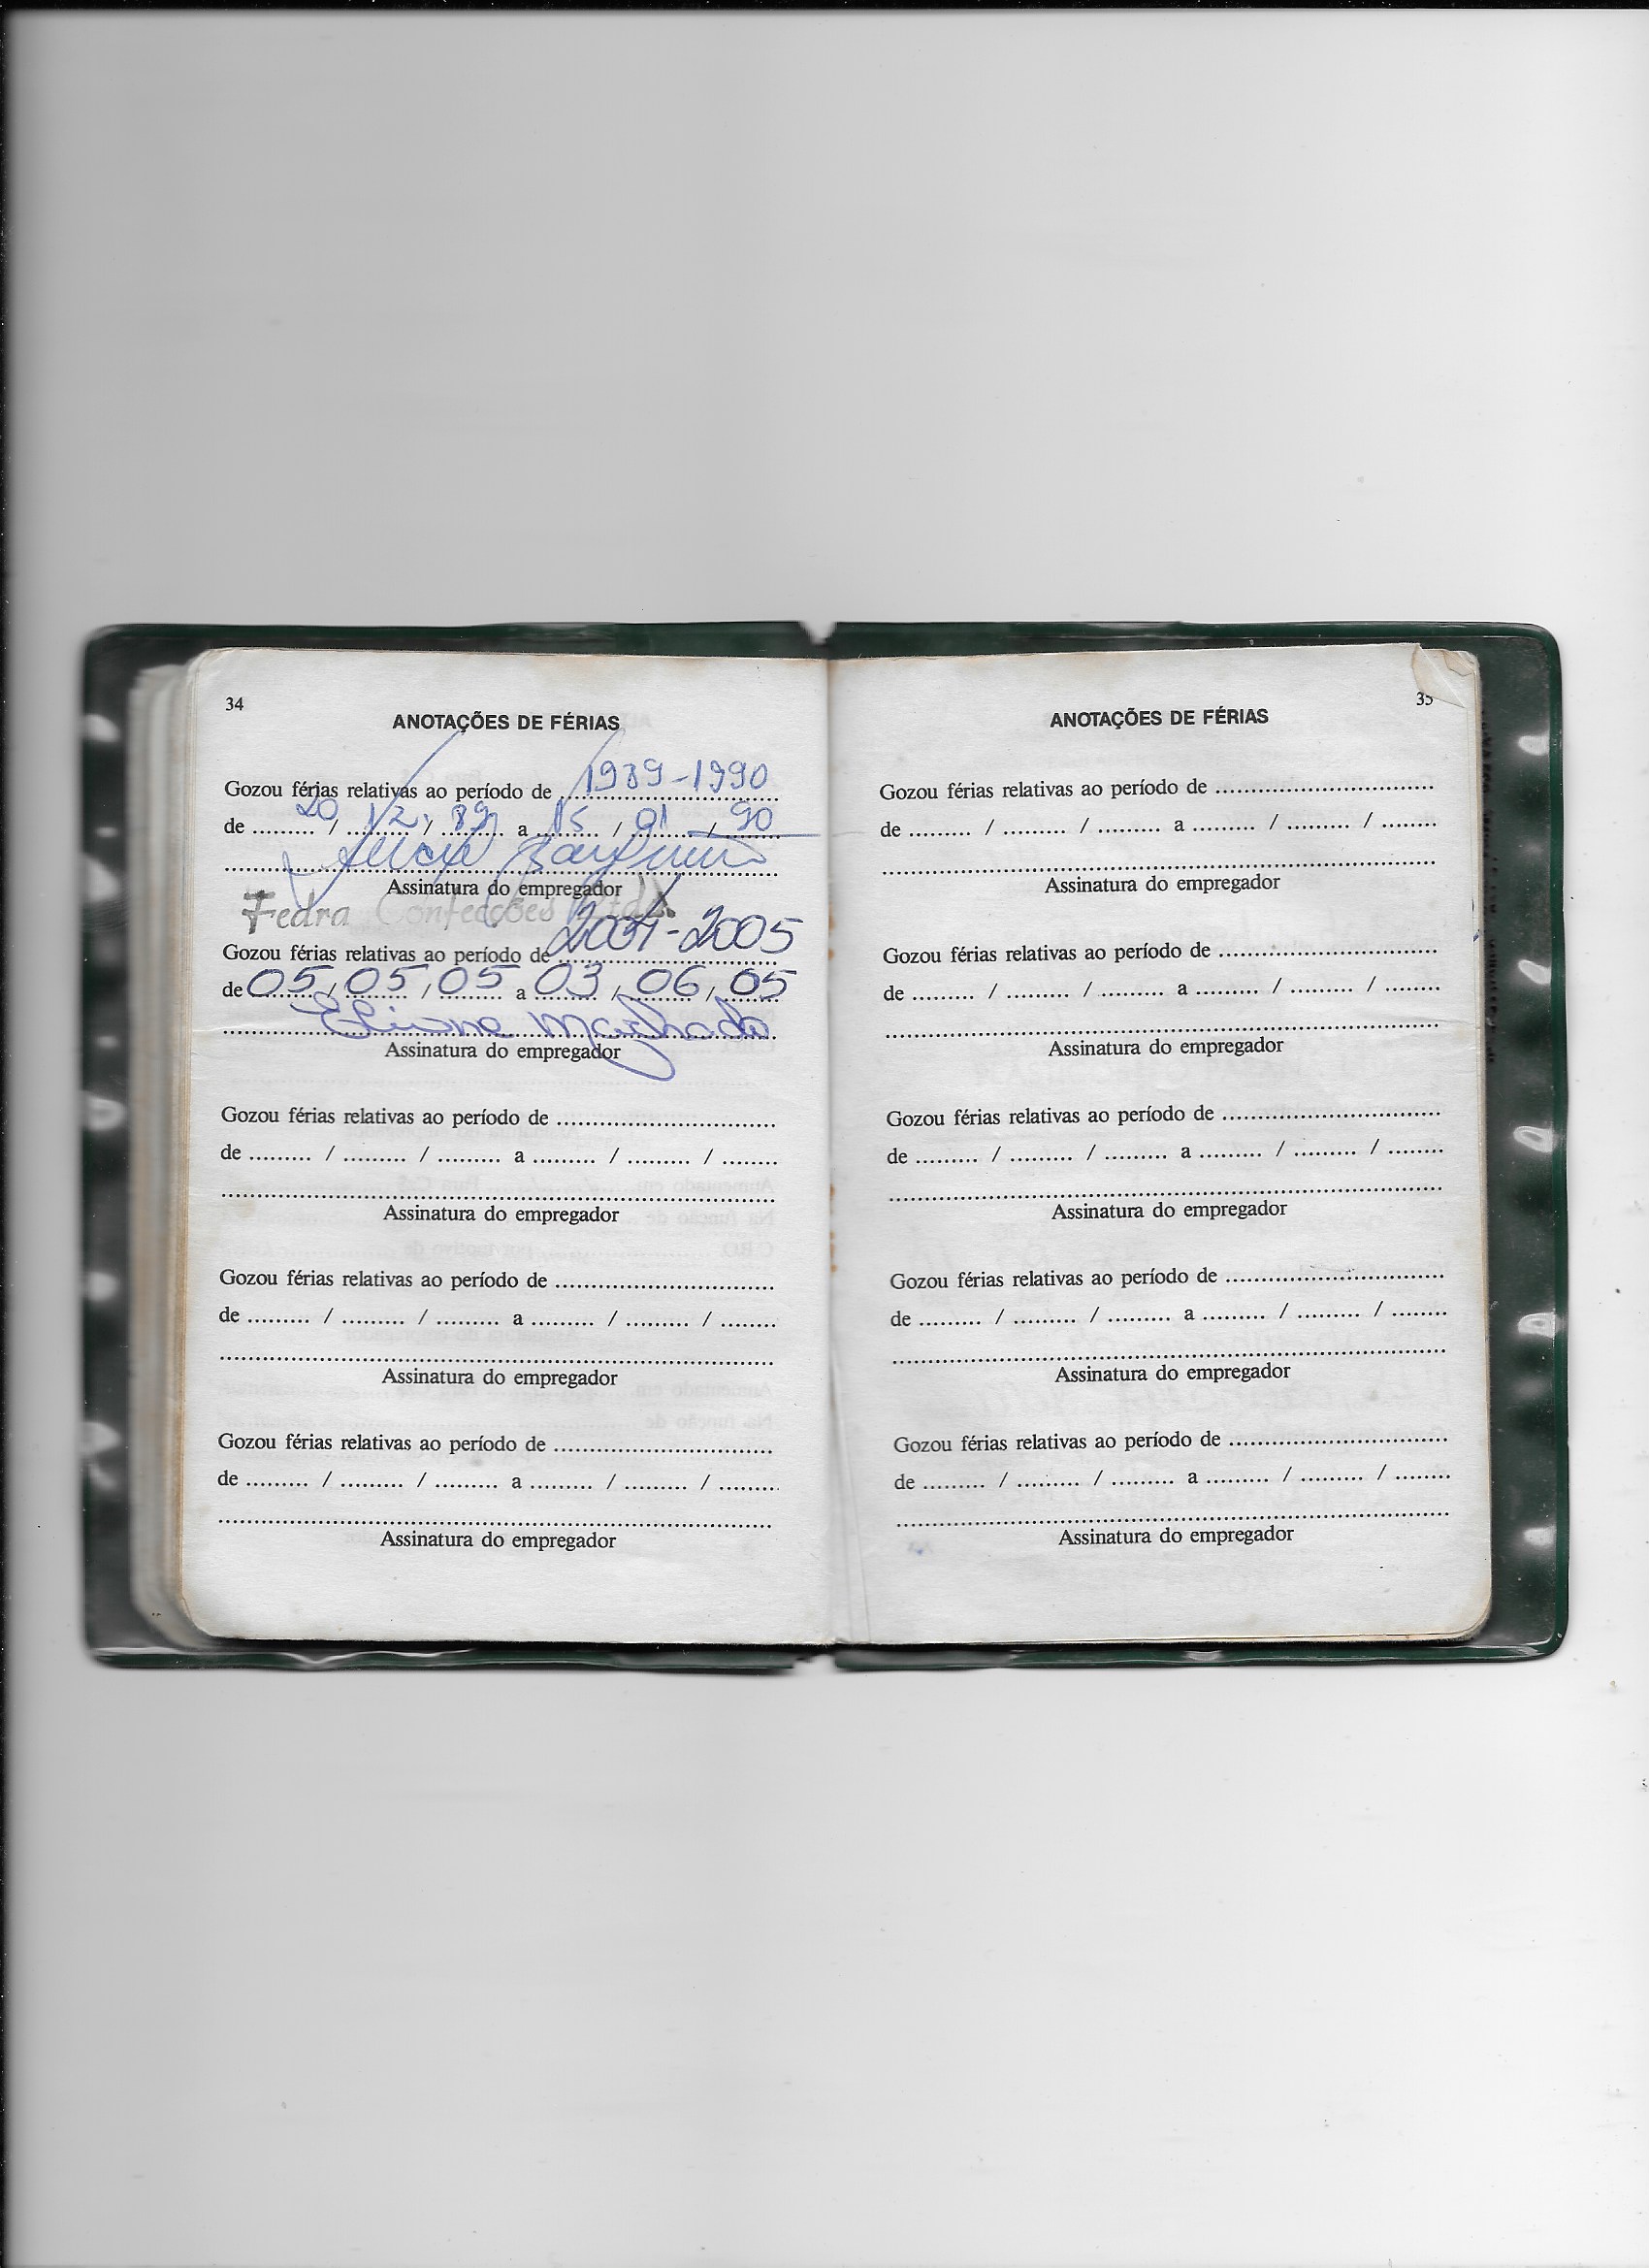 34
ANOTAÇÕES DE FÉRIAS
Gozou férias relativas ao período de 1989-1990
de 20 / 12 / 89 a 15 / 01 / 90
Assinatura do empregador
Fedra Confecções Ltda
Gozou férias relativas ao período de 2004-2005
de 05 / 05 / 05 a 03 / 06 / 05
Eliane Machado
Assinatura do empregador
Gozou férias relativas ao período de ........................................
de ......... / ......... / ......... a ......... / ......... / ........
Assinatura do empregador
Gozou férias relativas ao período de ........................................
de ......... / ......... / ......... a ......... / ......... / ........
Assinatura do empregador
Gozou férias relativas ao período de ........................................
de ......... / ......... / ......... a ......... / ......... / ........
Assinatura do empregador
35
ANOTAÇÕES DE FÉRIAS
Gozou férias relativas ao período de ........................................
de ......... / ......... / ......... a ......... / ......... / ........
Assinatura do empregador
Gozou férias relativas ao período de ........................................
de ......... / ......... / ......... a ......... / ......... / ........
Assinatura do empregador
Gozou férias relativas ao período de ........................................
de ......... / ......... / ......... a ......... / ......... / ........
Assinatura do empregador
Gozou férias relativas ao período de ........................................
de ......... / ......... / ......... a ......... / ......... / ........
Assinatura do empregador
Gozou férias relativas ao período de ........................................
de ......... / ......... / ......... a ......... / ......... / ........
Assinatura do empregador